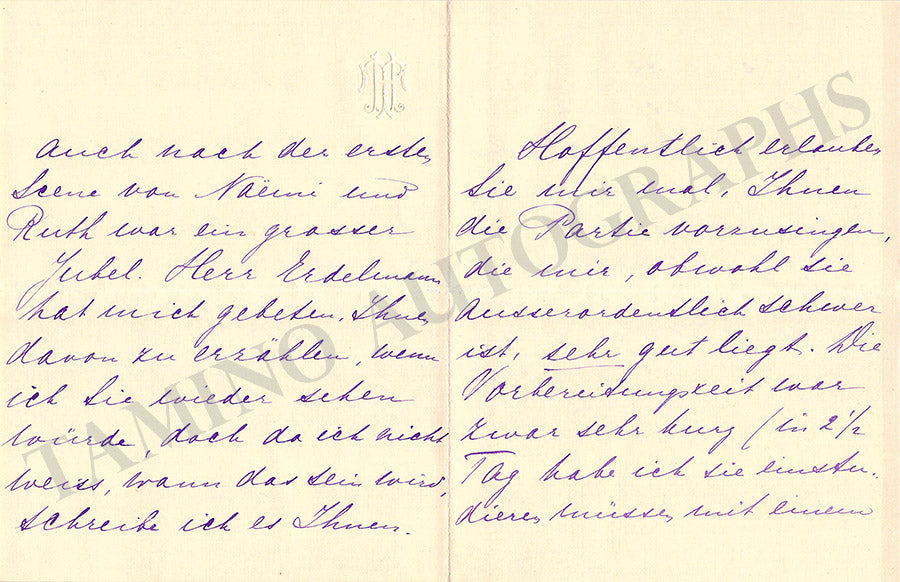 Auch nach der ersten
Scene von Naëmi und
Ruth war ein grosser
Jubel. Herr Erdelmann
hat mich gebeten, Ihnen
davon zu erzählen, wenn
ich Sie wieder sehen
würde, doch da ich nicht
weiss, wann das sein wird,
schreibe ich es Ihnen.
Hoffentlich erlauben
Sie mir mal, Ihnen
die Partie vorzusingen,
die mir, obwohl sie
ausserordentlich schwer
ist, sehr gut liegt. Die
Vorbereitungszeit war
zwar sehr kurz (in 2 1/2
Tag habe ich sie einstu-
dieren müssen mit einem
TAMINO AUTOGRAPHS